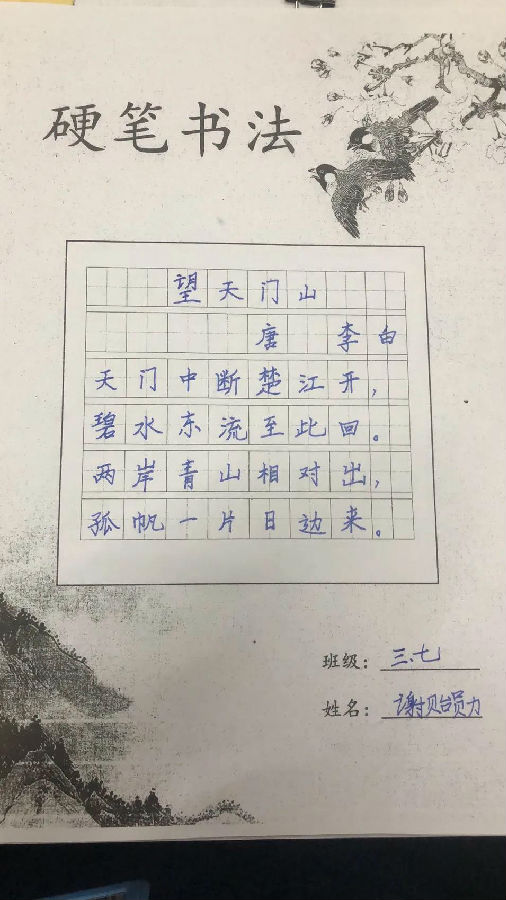 硬笔书法
望天门山
唐 李白
天门中断楚江开，
碧水东流至此回。
两岸青山相对出，
孤帆一片日边来。
班级：三、七
姓名：谢贻勋